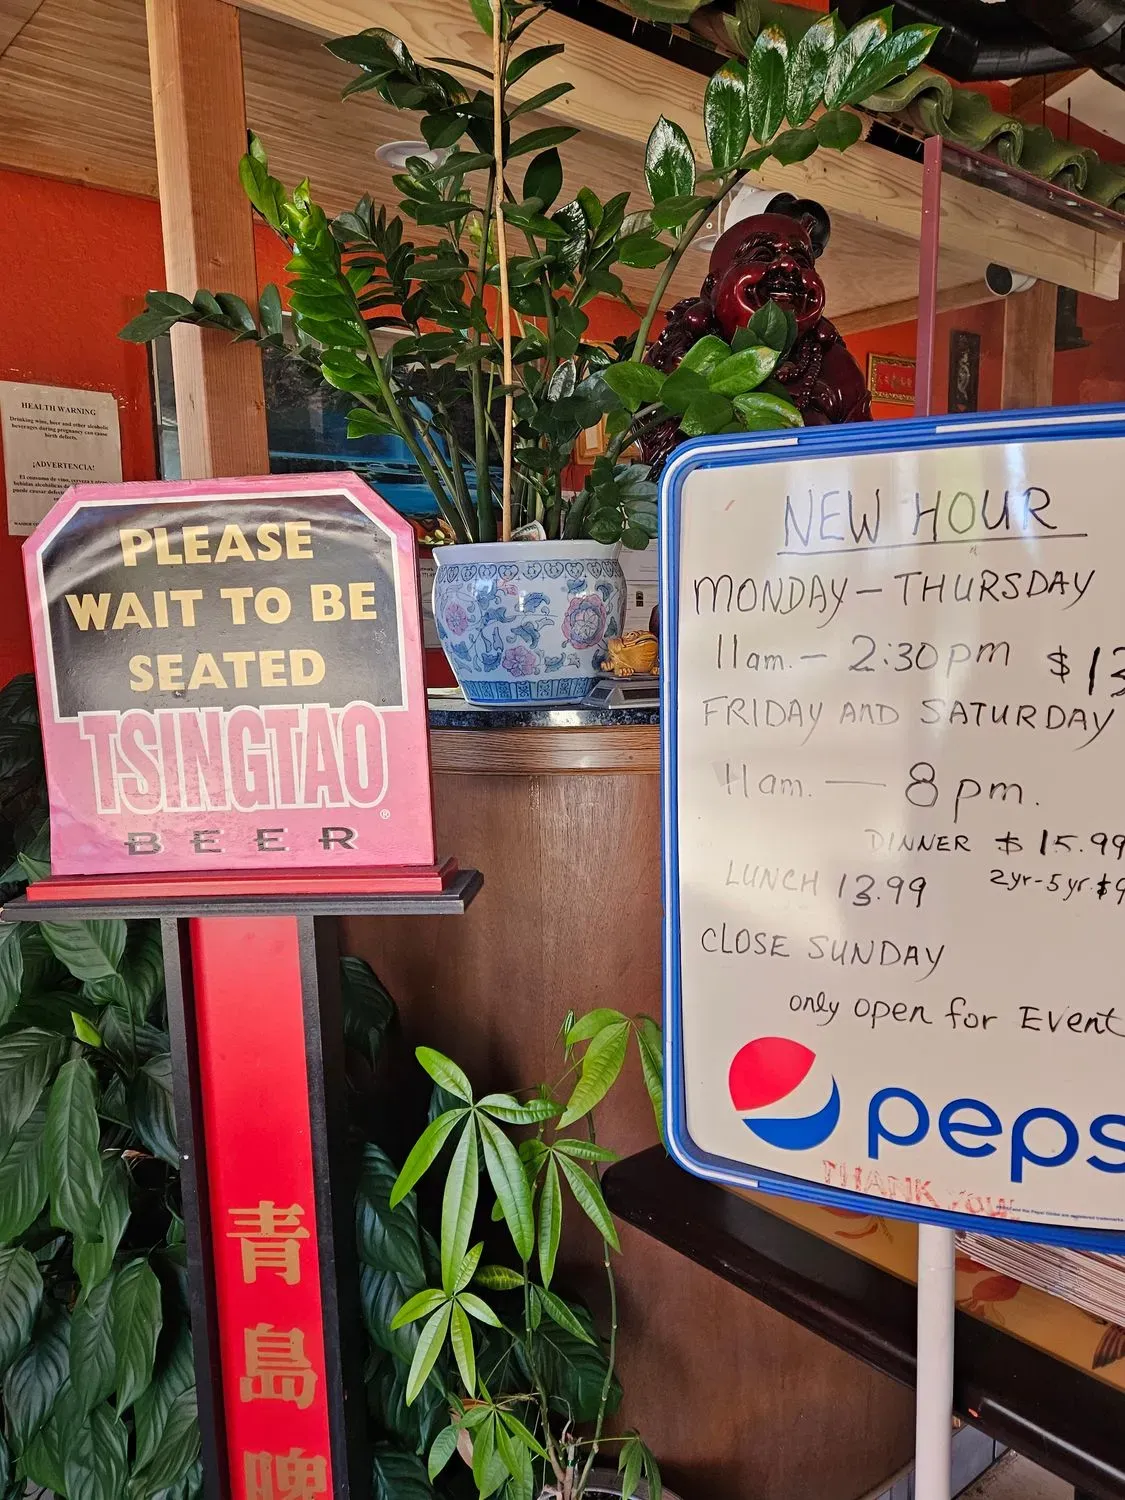 HEALTH WARNING
Drinking wine, beer and other alcoholic
beverages during pregnancy can cause
birth defects.
¡ADVERTENCIA!
PLEASE
WAIT TO BE
SEATED
TSINGTAO®
BEER
青
島
啤
NEW HOUR
MONDAY - THURSDAY
11am. - 2:30pm $13
FRIDAY AND SATURDAY
11am. — 8pm.
DINNER $15.99
LUNCH 13.99 2yr-5yr $9
CLOSE SUNDAY
only open for Event
peps
THANK YOU!